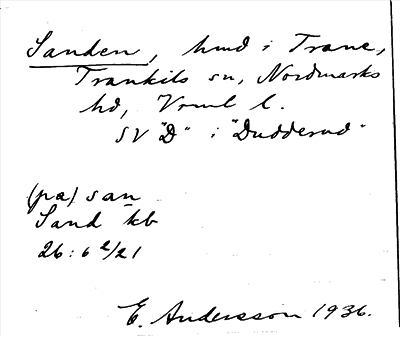 Sanden, hmd i Trane,
Trankils sn, Nordmarks
hd, Vrml l.
SV "D" i "Dudderud"
(pa) san
Sand kb
26: 6 2/21
E. Andersson 1936.